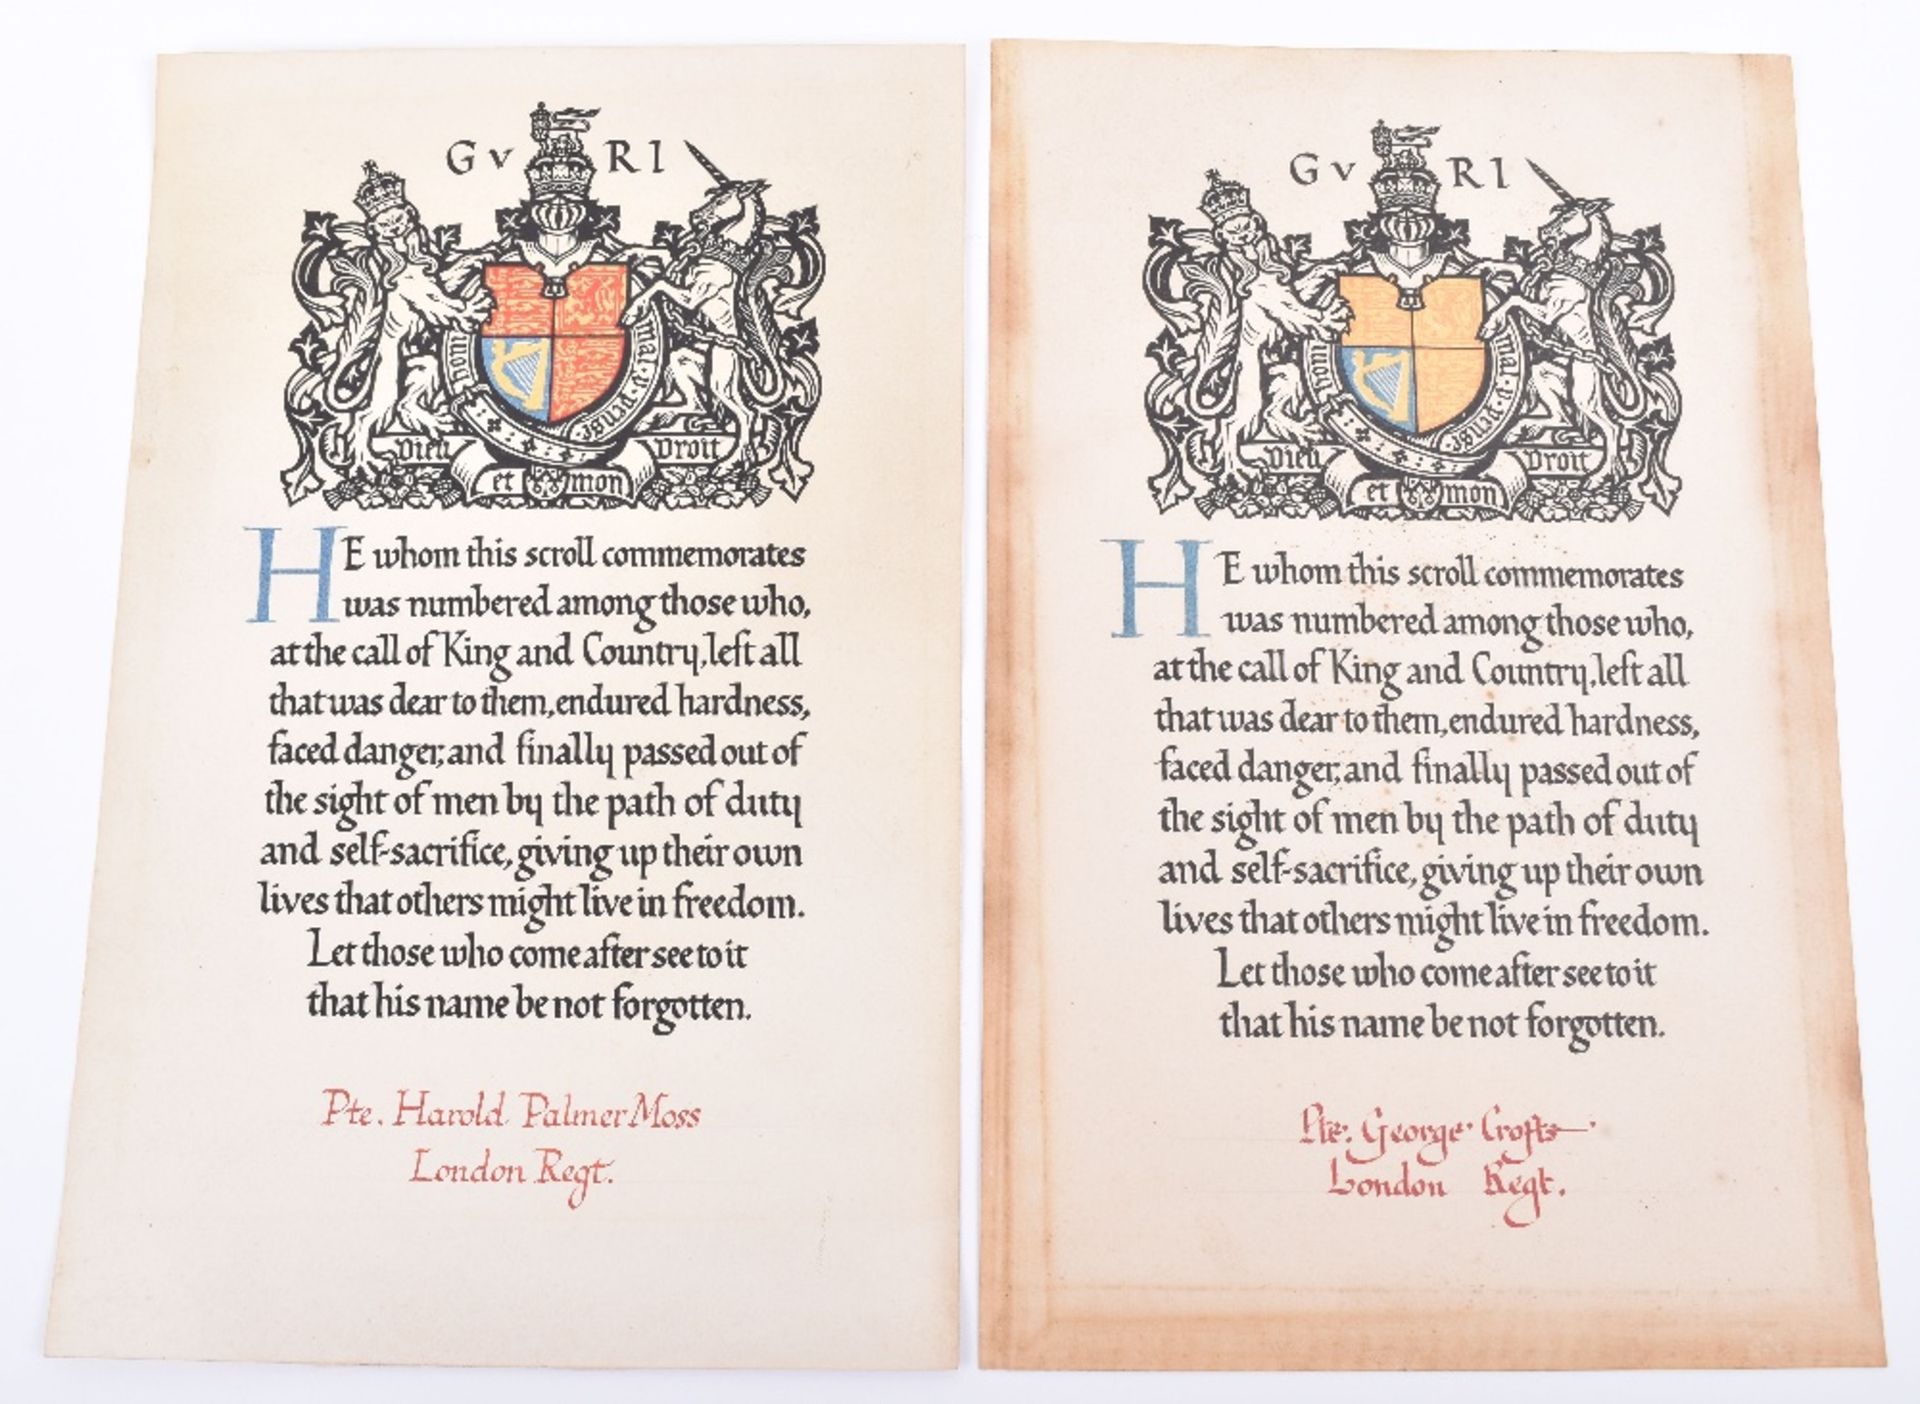 G V R I
mal · y · pense
Dieu Droit
et mon
HE whom this scroll commemorates
was numbered among those who,
at the call of King and Country, left all
that was dear to them, endured hardness,
faced danger, and finally passed out of
the sight of men by the path of duty
and self-sacrifice, giving up their own
lives that others might live in freedom.
Let those who come after see to it
that his name be not forgotten.
Pte. Harold Palmer Moss
London Regt.
G V R I
mal · y · pense
Dieu Droit
et mon
HE whom this scroll commemorates
was numbered among those who,
at the call of King and Country, left all
that was dear to them, endured hardness,
faced danger, and finally passed out of
the sight of men by the path of duty
and self-sacrifice, giving up their own
lives that others might live in freedom.
Let those who come after see to it
that his name be not forgotten.
Pte. George Crofts
London Regt.